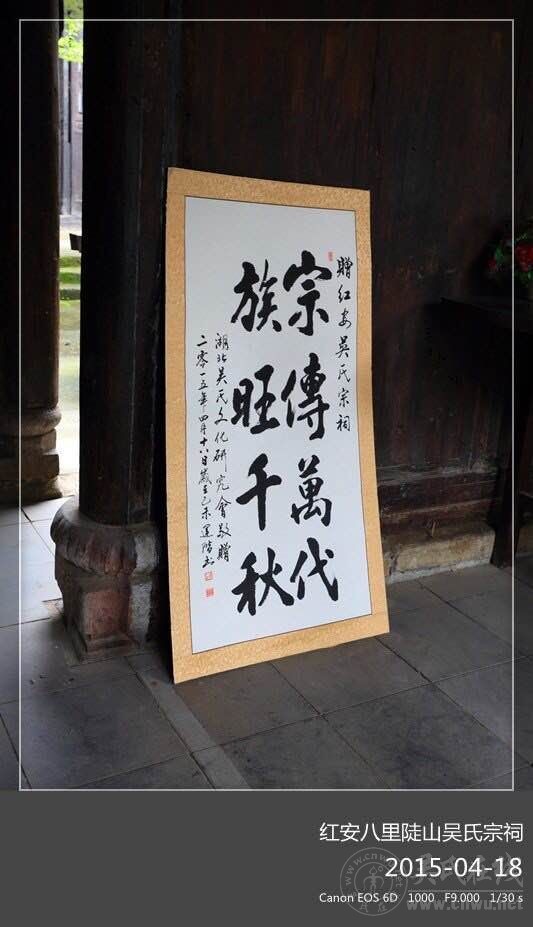 赠红安吴氏宗祠
宗傳萬代
族旺千秋
湖北吴氏文化研究會敬贈
二零一五年四月十八日歲在乙未運階书
红安八里陡山吴氏宗祠
2015-04-18
Canon EOS 6D 1000 F9.000 1/30 s
吴氏在线
www.cnwu.net